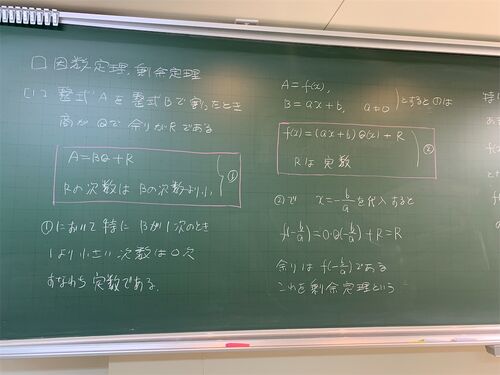 □ 因数定理、剰余定理
(1) 整式Aを整式Bで割ったとき
商がQで余りがRである
A=BQ+R
Rの次数はBの次数より小
①
①において特にBが1次のとき
1より小さい次数は0次
すなわち定数である.
A=f(x),
B=ax+b, a≠0
とするのは
f(x)=(ax+b)Q(x)+R
Rは定数
②
②で x=-b/a を代入すると
f(-b/a)=0·Q(-b/a)+R=R
余りは f(-b/a) である
これを剰余定理という